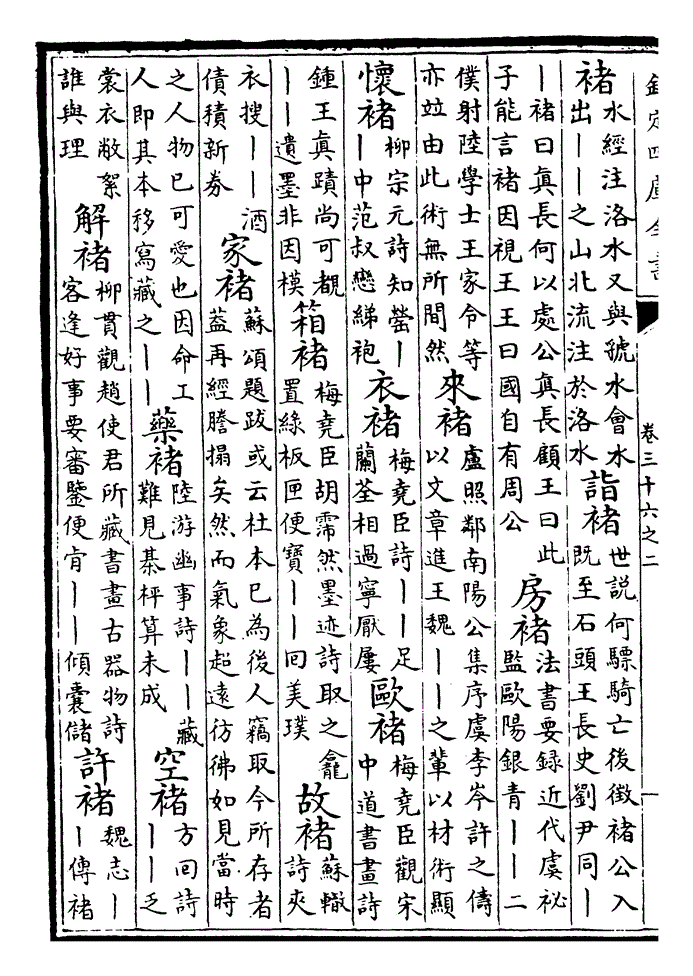 欽定四庫全書
卷三十六之二
一
褚
水經注洛水又與虢水會水
出——之山北流注於洛水
詣褚
世説何驃騎亡後徴褚公入
既至石頭王長史劉尹同—
—褚曰眞長何以處公眞長顧王曰此
子能言褚因視王王曰國自有周公
房褚
法書要録近代虞祕
監歐陽銀青——二
僕射陸學士王家令等
亦竝由此術無所間然
來褚
盧照鄰南陽公集序虞李岑許之儔
以文章進王魏——之輩以材術顯
懷褚
柳宗元詩知螢—
—中范叔戀綈袍
衣褚
梅堯臣詩——足
蘭荃相過寧厭屢
歐褚
梅堯臣觀宋
中道書畫詩
鍾王眞蹟尚可覩
——遺墨非因模
箱褚
梅堯臣胡霈然墨迹詩取之龕
置緑板匣便寶——囘美璞
故褚
蘇轍
詩夾
衣搜——酒
債積新券
家褚
蘇頌題跋或云杜本已為後人竊取今所存者
葢再經謄搨矣然而氣象超遠彷彿如見當時
之人物已可愛也因命工
人即其本移寫藏之——
藥褚
陸游幽事詩——藏
難見棊枰算未成
空褚
方回詩
——乏
裳衣敝絮
誰與理
解褚
柳貫觀趙使君所藏書畫古器物詩
客逢好事要審鑒便肯——傾囊儲
許褚
魏志—
—傳褚